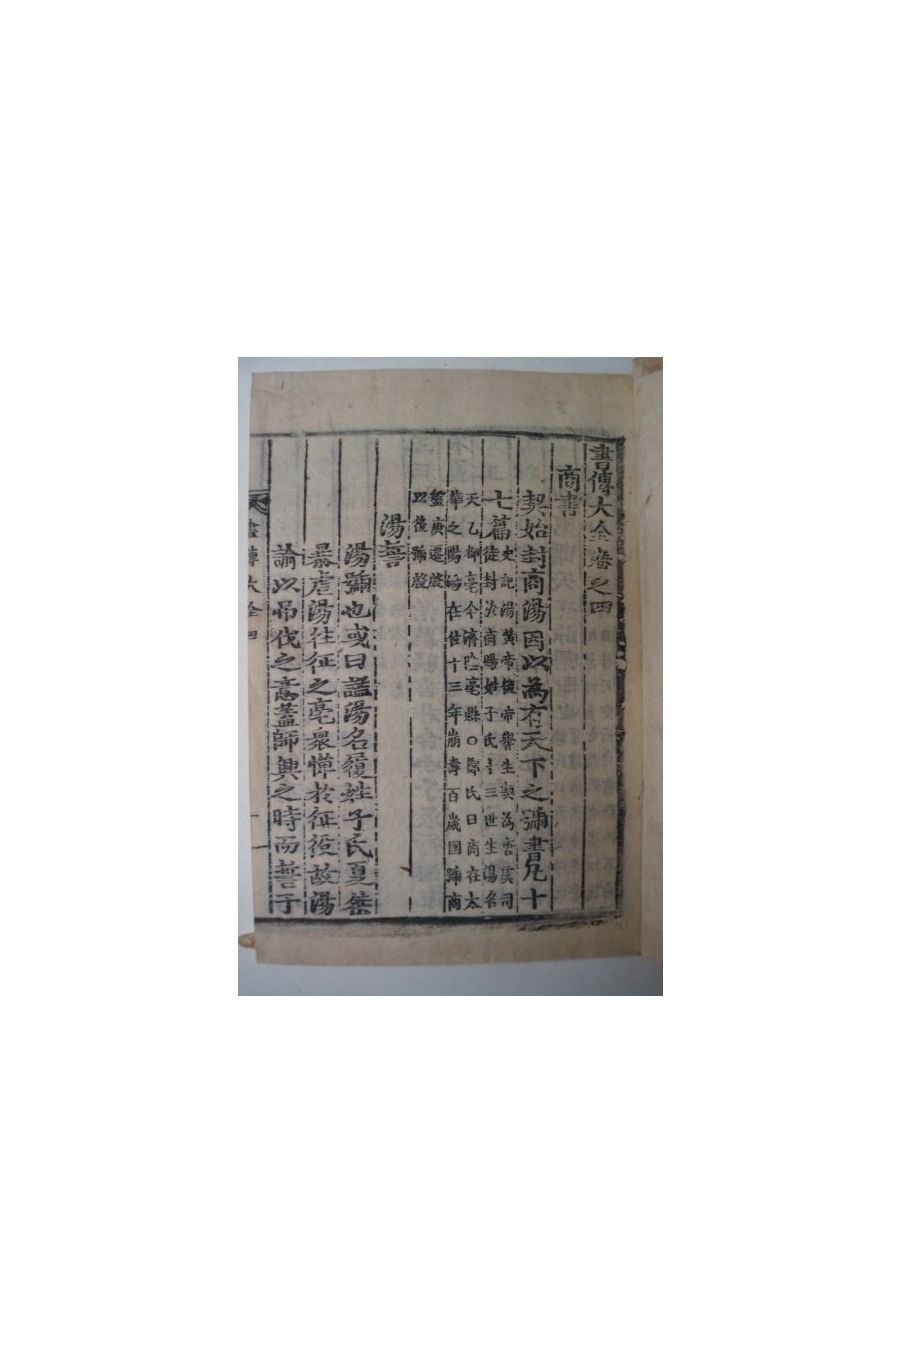 書傳大全卷之四
商書
契始封商湯因以為有天下之號書凡十
七篇史記湯黃帝後帝嚳生契為唐虞司
徒封於商賜姓子氏十三世生湯名
天乙都亳今濟陰亳縣○鄭氏曰商在太
華之陽湯在位十三年崩壽百歲国號商
盤庚遷殷
以後號殷
湯誓
湯號也或曰諡湯名履姓子氏夏桀
暴虐湯往征之亳衆憚於征役故湯
諭以吊伐之意蓋師興之時而誓于
書傳大全 四